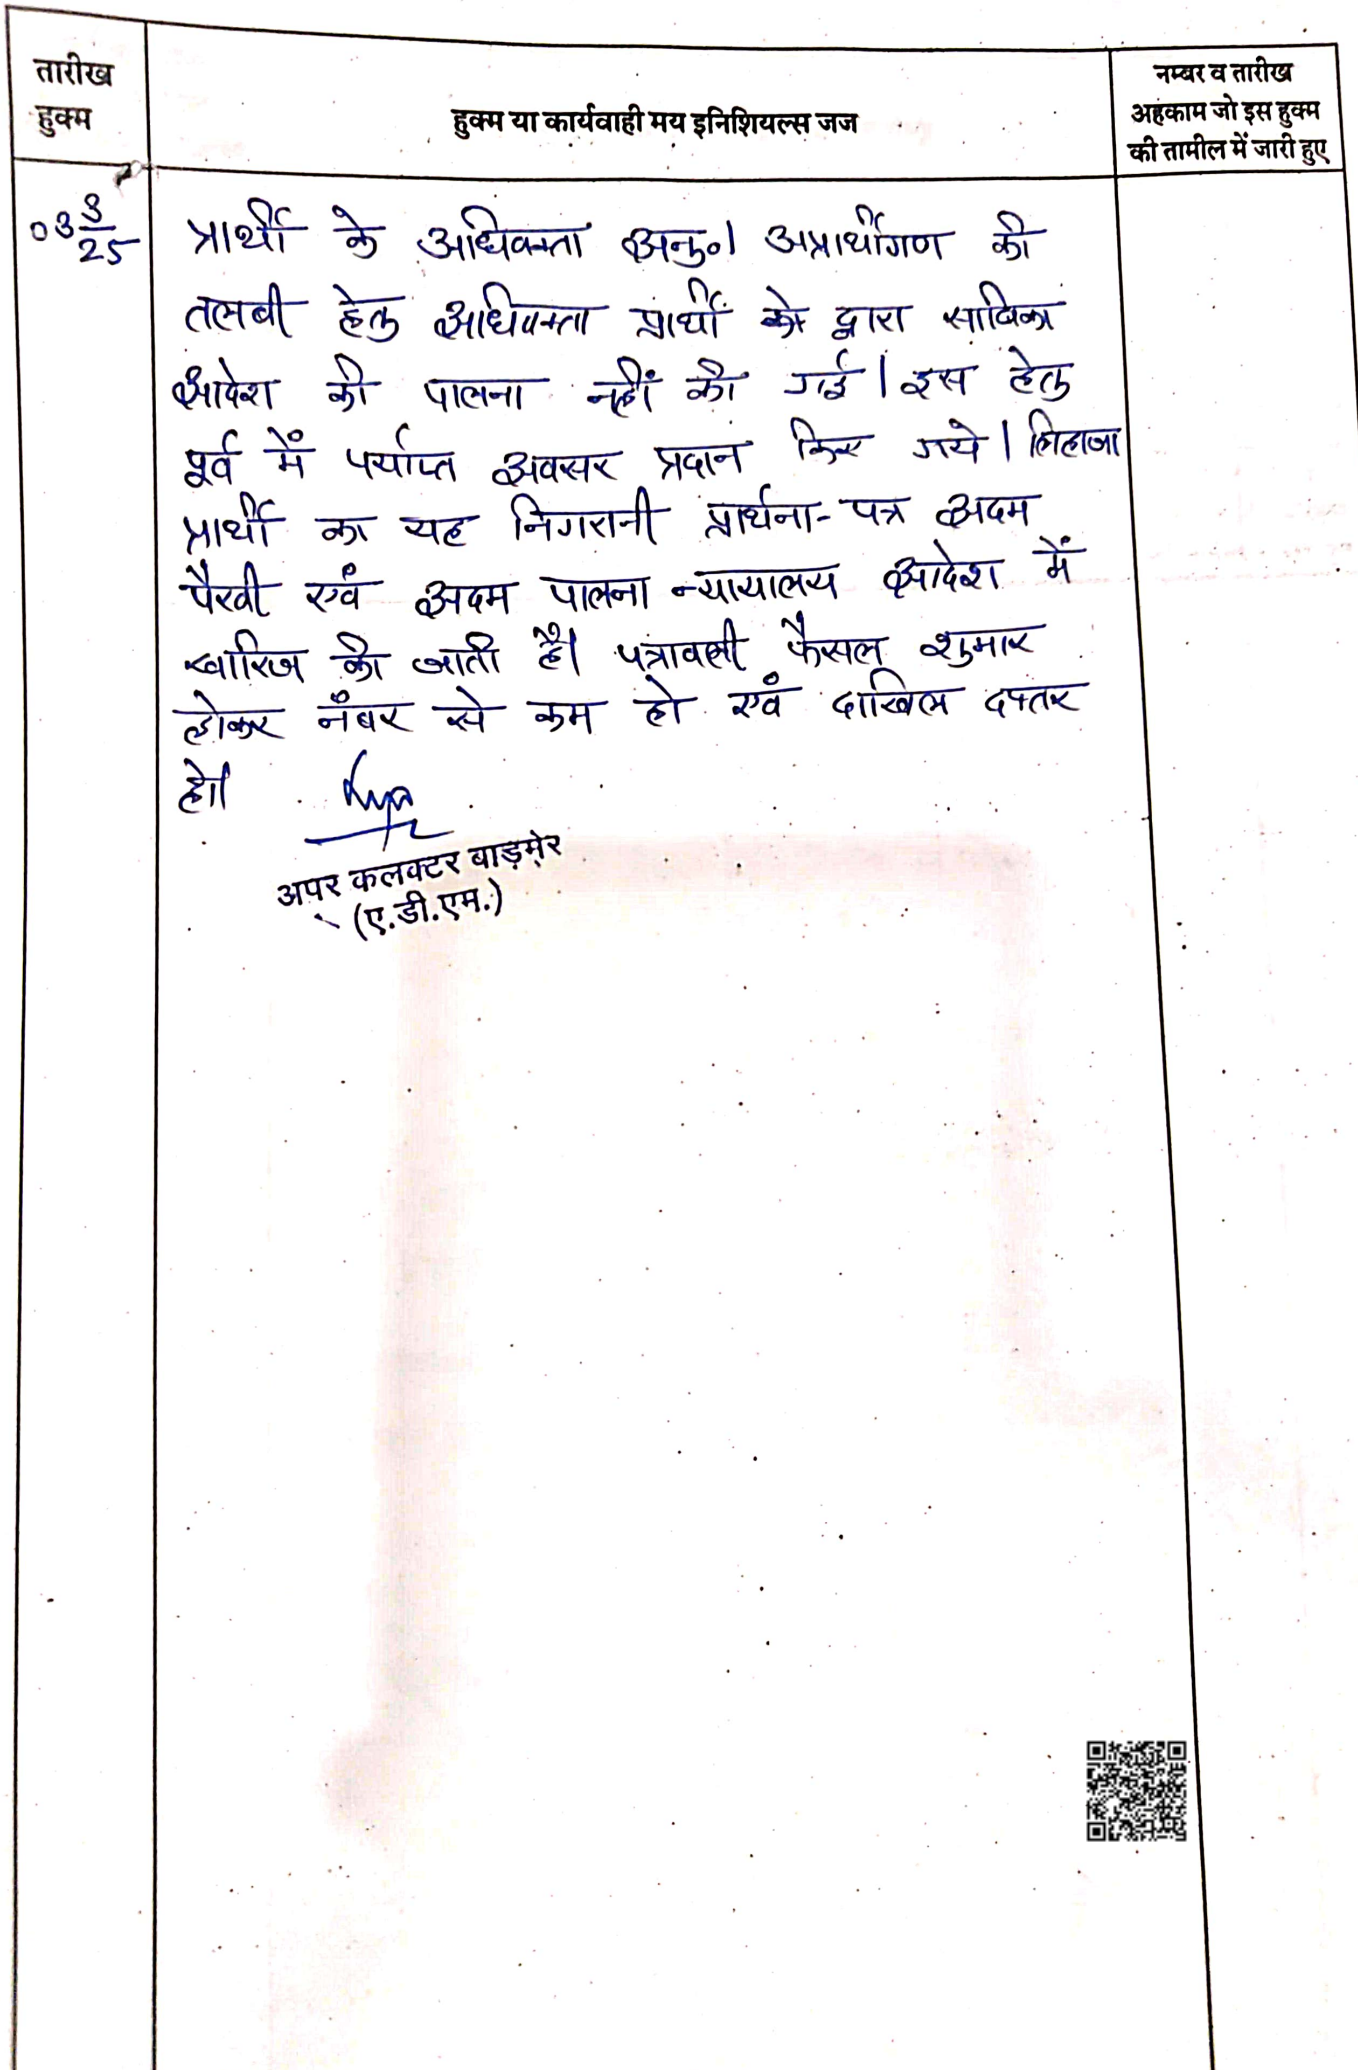 तारीख
हुक्म
हुक्म या कार्यवाही मय इनिशियल्स जज
नम्बर व तारीख
अहकाम जो इस हुक्म
की तामील में जारी हुए
03 3/25
प्रार्थी के अधिवक्ता अनु०। अप्रार्थीगण की
तलबी हेतु अधिवक्ता प्रार्थी के द्वारा साबिका
आदेश की पालना नहीं की गई। इस हेतु
पूर्व में पर्याप्त अवसर प्रदान किए गये। लिहाजा
प्रार्थी का यह निगरानी प्रार्थना-पत्र अदम
पैरवी एवं अदम पालना न्यायालय आदेश में
खारिज की जाती है। पत्रावली फैसल शुमार
होकर नंबर से कम हो एवं दाखिल दफ्तर
हो।
अपर कलक्टर बाड़मेर
(ए.डी.एम.)